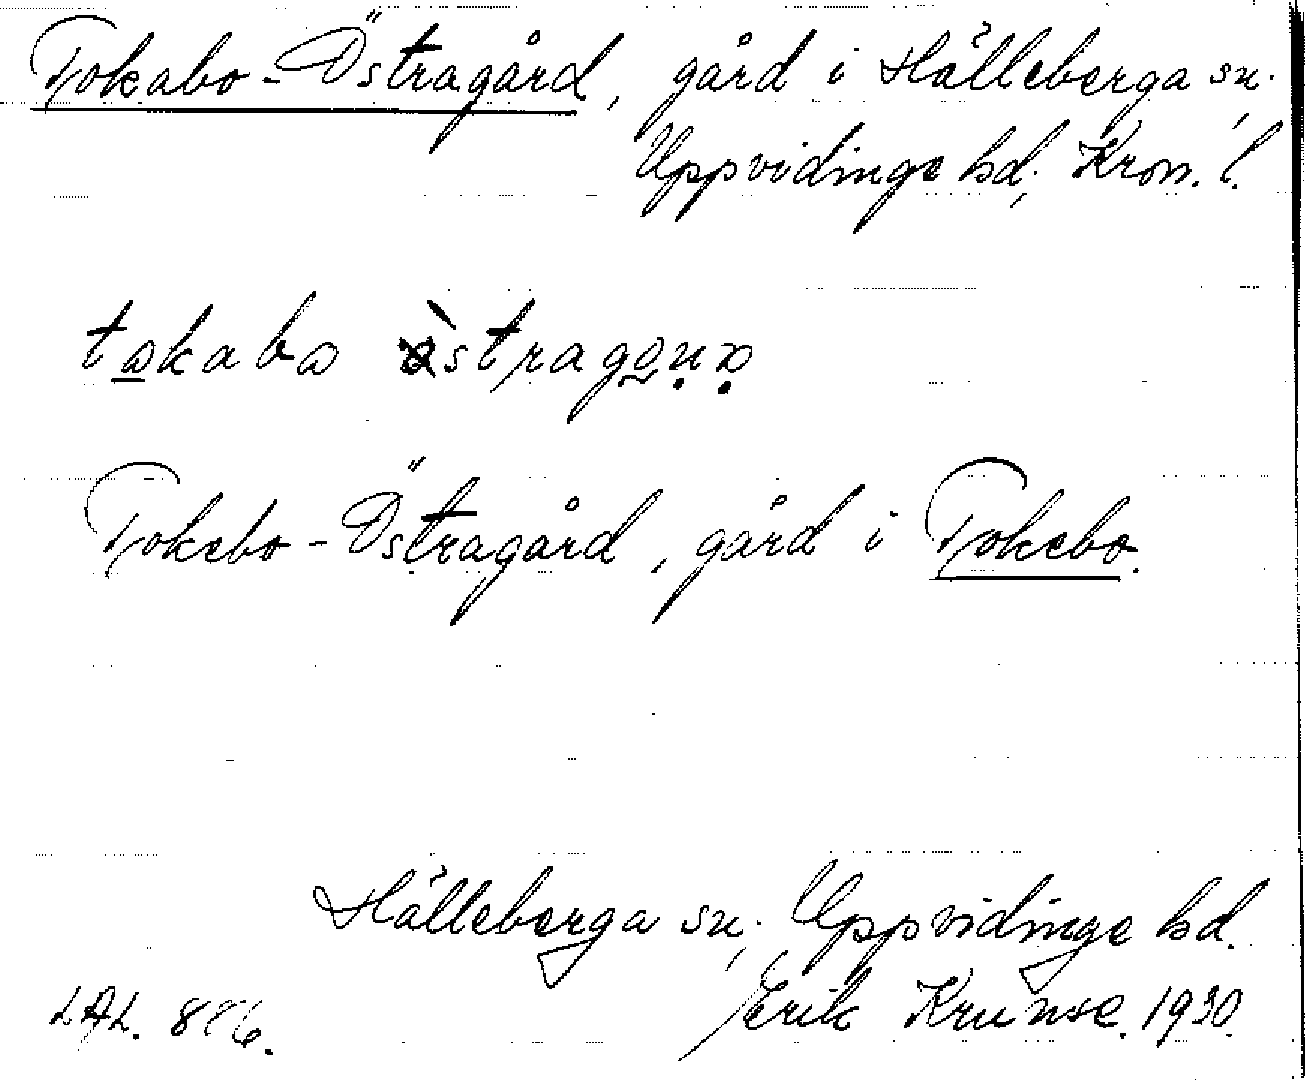 Tokabo-Östragård, gård i Hälleberga sn.,
Uppvidinge hd., Kron. l.
Tokebo-Östragård, gård i Tokebo.
Hälleberga sn., Uppvidinge hd.
LAL. Erik Krunse. 1930.